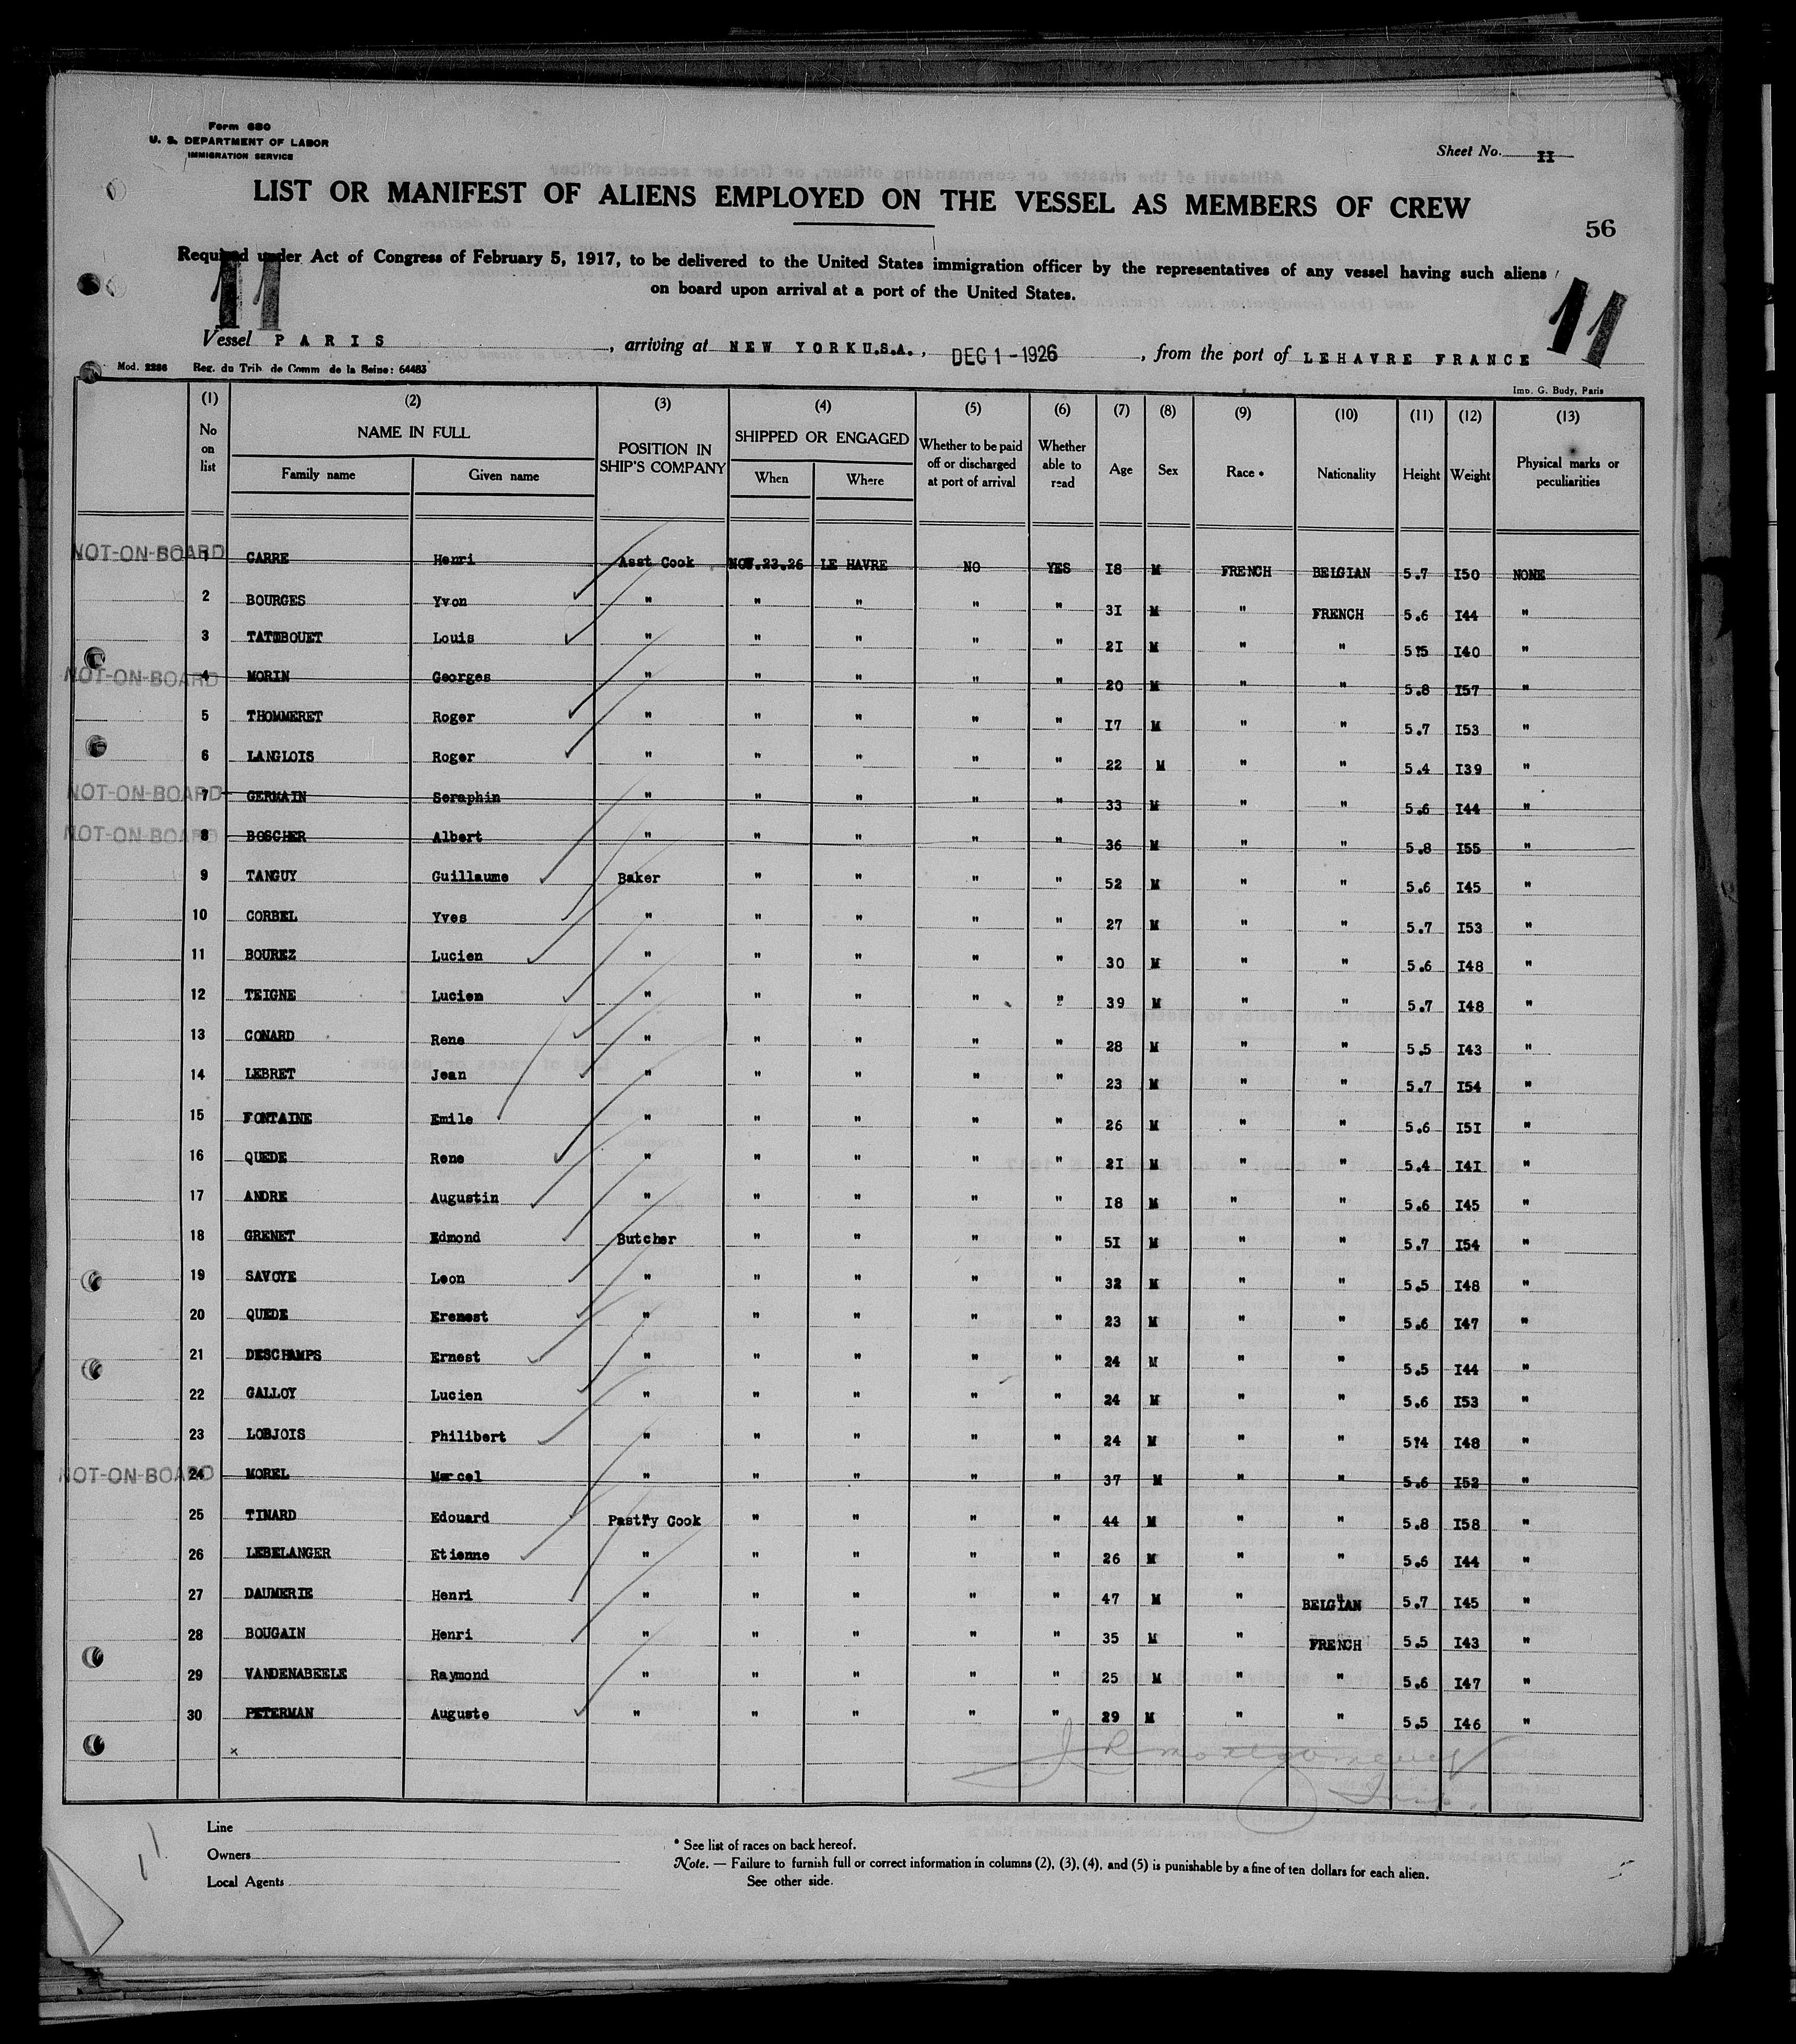 Form 680
U. S. DEPARTMENT OF LABOR
IMMIGRATION SERVICE
Sheet No. II
LIST OR MANIFEST OF ALIENS EMPLOYED ON THE VESSEL AS MEMBERS OF CREW
56
Required under Act of Congress of February 5, 1917, to be delivered to the United States immigration officer by the representatives of any vessel having such aliens
on board upon arrival at a port of the United States.
11 11
Vessel PARIS, arriving at NEW YORK U.S.A., DEC 1 - 1926, from the port of LEHAVRE FRANCE
Mod. 2286 Reg. du Trib. de Comm de la Seine: 64483
Imp. G. Budy, Paris
(1) (2) (3) (4) (5) (6) (7) (8) (9) (10) (11) (12) (13)
No on list NAME IN FULL Family name Given name POSITION IN SHIP'S COMPANY SHIPPED OR ENGAGED When Where Whether to be paid off or discharged at port of arrival Whether able to read Age Sex Race * Nationality Height Weight Physical marks or peculiarities
NOT-ON-BOARD 1 CARRE Henri Asst Cook NOV.23.26 LE HAVRE NO YES I8 M FRENCH BELGIAN 5.7 I50 NONE
2 BOURGES Yvon " " " " " 3I M " FRENCH 5.6 I44 "
3 TATIBOUET Louis " " " " " 2I M " " 5.5 I40 "
NOT-ON-BOARD 4 MORIN Georges " " " " " 20 M " " 5.8 I57 "
5 THOMMERET Roger " " " " " I7 M " " 5.7 I53 "
6 LANGLOIS Roger " " " " " 22 M " " 5.4 I39 "
NOT-ON-BOARD 7 GERMAIN Seraphin " " " " " 33 M " " 5.6 I44 "
NOT-ON-BOARD 8 BOSCHER Albert " " " " " 36 M " " 5.8 I55 "
9 TANGUY Guillaume Baker " " " " 52 M " " 5.6 I45 "
10 CORBEL Yves " " " " " 27 M " " 5.7 I53 "
11 BOUREZ Lucien " " " " " 30 M " " 5.6 I48 "
12 TEIGNE Lucien " " " " " 39 M " " 5.7 I48 "
13 CONARD Rene " " " " " 28 M " " 5.5 I43 "
14 LEBRET Jean " " " " " 23 M " " 5.7 I54 "
15 FONTAINE Emile " " " " " 26 M " " 5.6 I5I "
16 QUEDE Rene " " " " " 2I M " " 5.4 I4I "
17 ANDRE Augustin " " " " " I8 M " " 5.6 I45 "
18 GRENET Edmond Butcher " " " " 5I M " " 5.7 I54 "
19 SAVOYE Leon " " " " " 32 M " " 5.5 I48 "
20 QUEDE Erenest " " " " " 23 M " " 5.6 I47 "
21 DESCHAMPS Ernest " " " " " 24 M " " 5.5 I44 "
22 GALLOY Lucien " " " " " 24 M " " 5.6 I53 "
23 LOBJOIS Philibert " " " " " 24 M " " 5.4 I48 "
NOT-ON-BOARD 24 MOREL Marcel " " " " " 37 M " " 5.6 I52 "
25 TINARD Edouard Pastry Cook " " " " 44 M " " 5.8 I58 "
26 LEBELANGER Etienne " " " " " 26 M " " 5.6 I44 "
27 DAUMERIE Henri " " " " " 47 M " BELGIAN 5.7 I45 "
28 BOUGAIN Henri " " " " " 35 M " FRENCH 5.5 I43 "
29 VANDENABEELE Raymond " " " " " 25 M " " 5.6 I47 "
30 PETERMAN Auguste " " " " " 29 M " " 5.5 I46 "
x
Line
Owners
Local Agents
* See list of races on back hereof.
Note. — Failure to furnish full or correct information in columns (2), (3), (4), and (5) is punishable by a fine of ten dollars for each alien.
See other side.